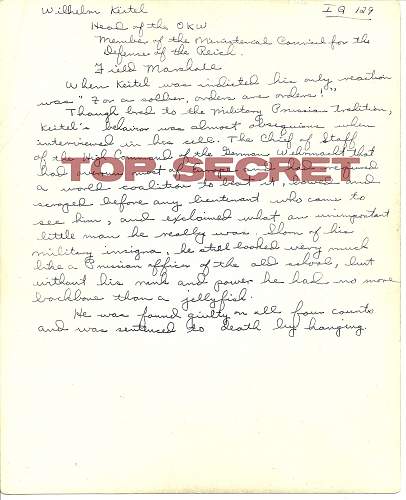 Wilhelm Keitel I Q 129
Head of the OKW
Member of the Ministereal Council for the
Defence of the Reich.
Field Marshall
When Keitel was indicted his only reaction
was "For a soldier, orders are orders!"
Though bred to the Military Prussian Tradition,
Keitel's behavior was almost obsequious when
interviewed in his cell. The Chief of Staff
of the High Command of the German Wehrmacht that
had most of and
TOP SECRET
a world coalition to beat it, and
scraped before any lieutenant who came to
see him, and exclaimed what an unimportant
little man he really was. Shorn of his
military insignia, he still looked very much
like a Prussian officer of the old school, but
without his rank and power he had no more
backbone than a jellyfish.
He was found guilty on all four counts
and was sentenced to death by hanging.